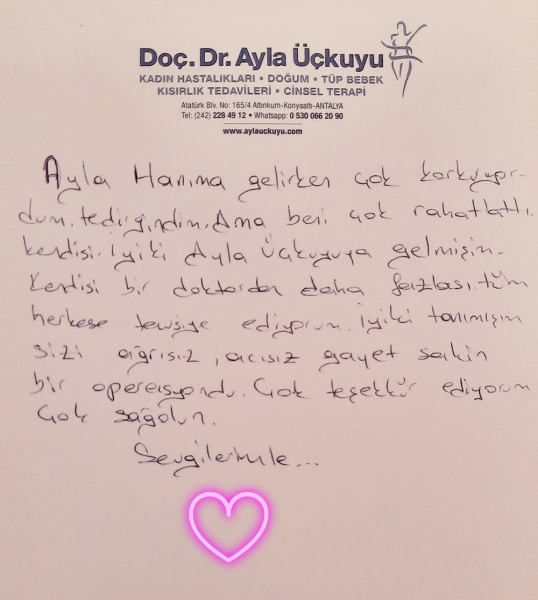 Doç. Dr. Ayla Üçkuyu
KADIN HASTALIKLARI • DOĞUM • TÜP BEBEK
KISIRLIK TEDAVİLERİ • CİNSEL TERAPİ
Atatürk Blv. No: 165/4 Altınkum-Konyaaltı-ANTALYA
Tel: (242) 228 49 12 • Whatsapp: 0 530 066 20 90
www.aylauckuyu.com
Ayla Hanıma gelirken çok korkuyor-
dum, tedirgindim. Ama beni çok rahatlattı.
kendisi. iyiki Ayla Üçkuyuya gelmişim.
Kendisi bir doktordan daha fazlası. tüm
herkese tavsiye ediyorum. iyiki tanımışım
sizi ağrısız, acısız gayet sakin
bir operasyondu. Çok teşekkür ediyorum
Çok sağolun.
Sevgilerimle...